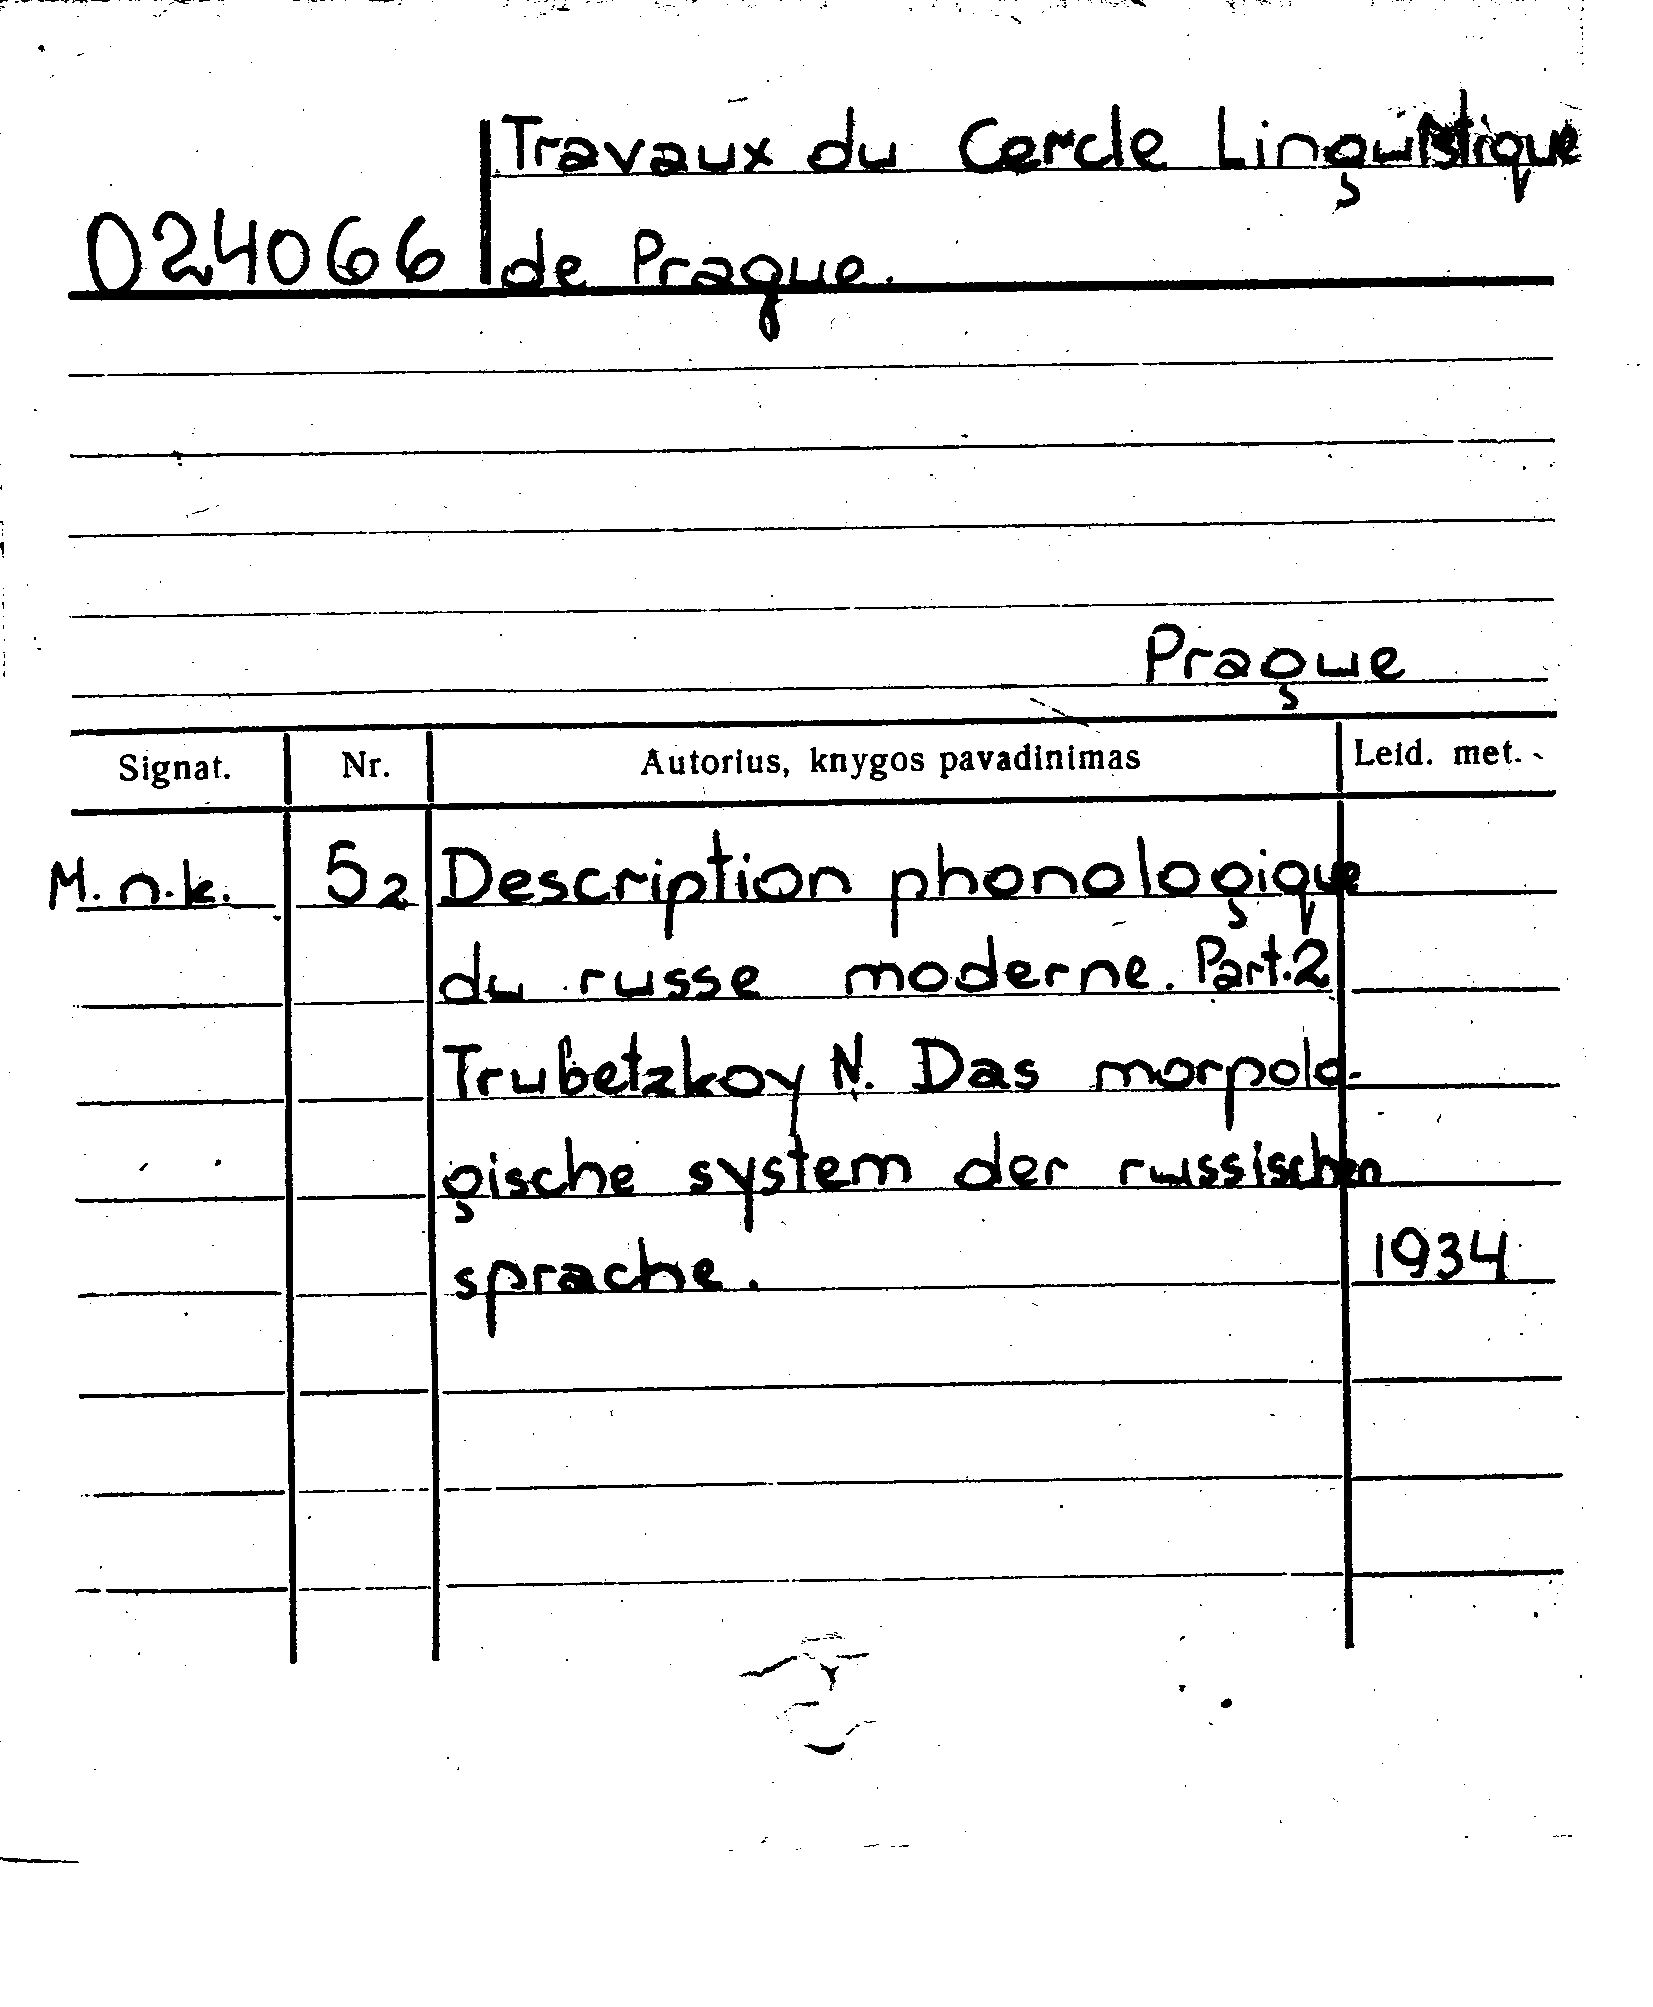 Travaux du Cercle Linguistique
024066 de Prague.
Prague
Signat. Nr. Autorius, knygos pavadinimas Leid. met.
M. n.k. 52 Description phonologique
du russe moderne. Part.2
Trubetzkoy N. Das morpolo-
gische system der russischen
sprache. 1934